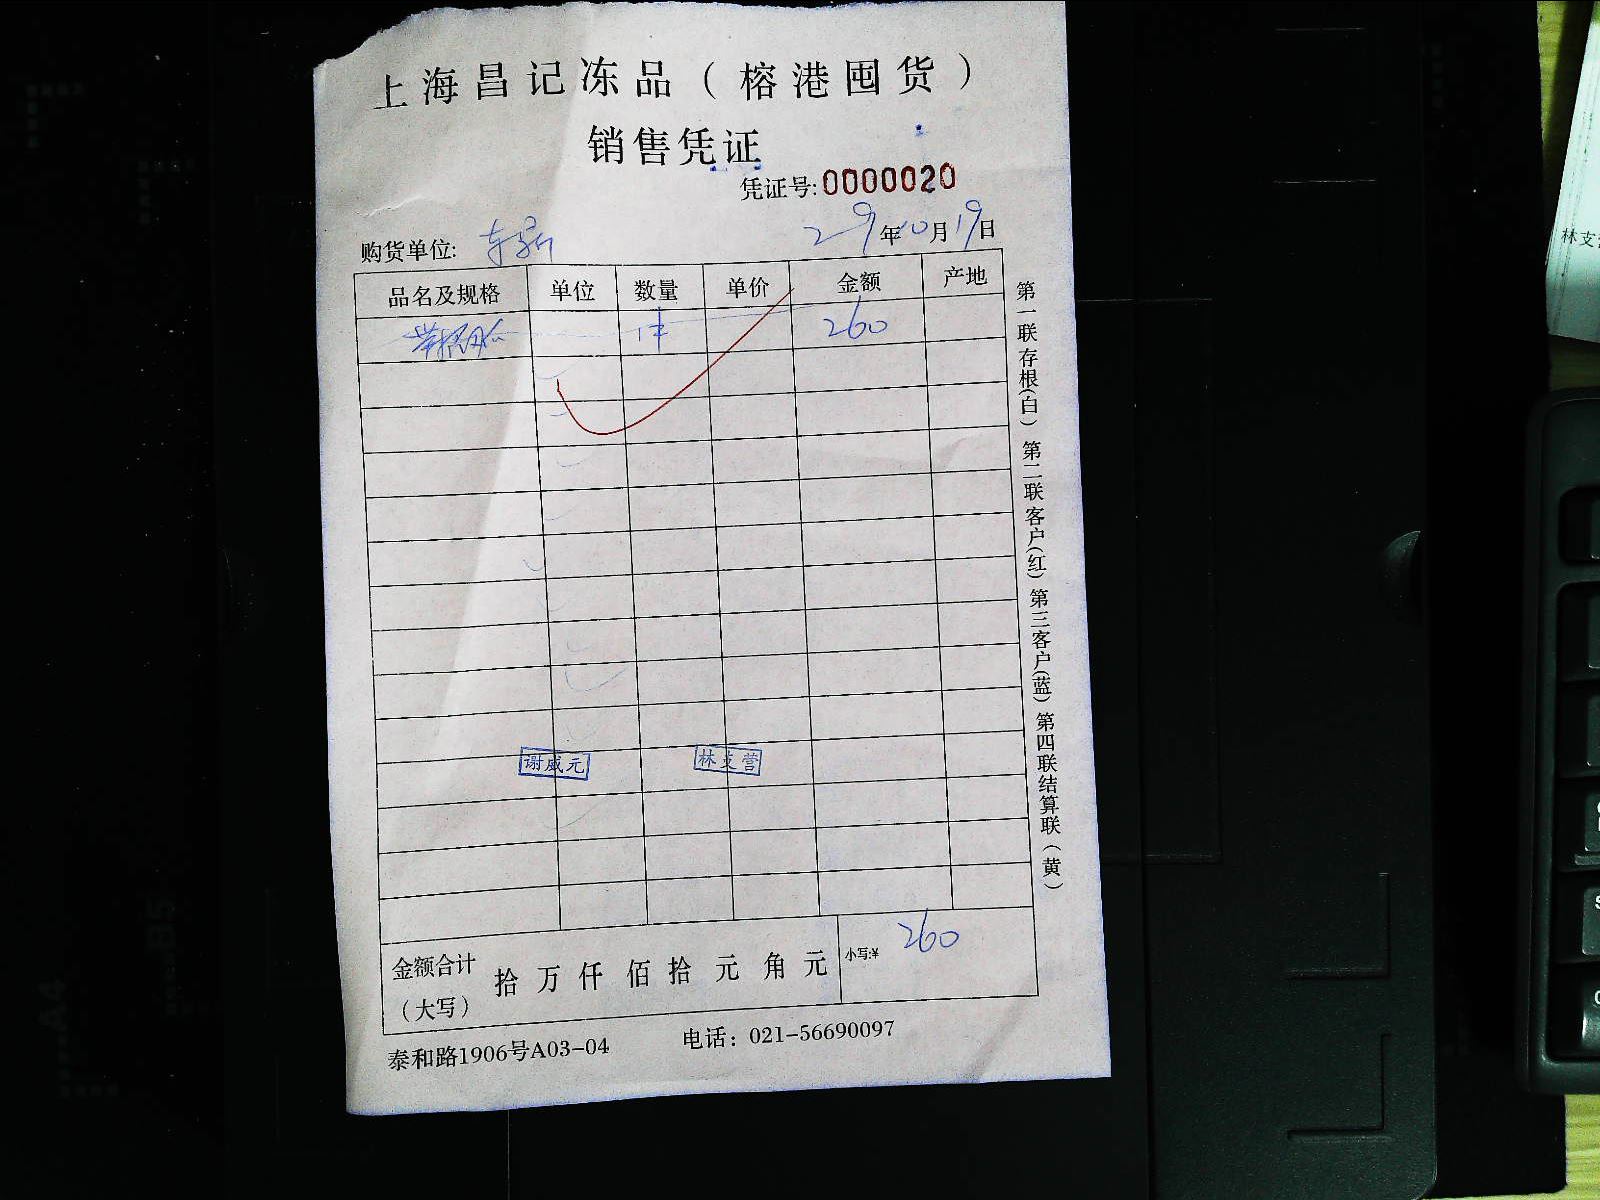 上海昌记冻品（榕港囤货）
销售凭证
凭证号:0000020
购货单位:
29年10月19日
品名及规格 单位 数量 单价 金额 产地
1件 260
谢威元 林支营
金额合计（大写） 拾万仟佰拾元角元 小写:¥ 260
泰和路1906号A03-04 电话：021-56690097
第一联存根(白) 第二联客户(红) 第三客户(蓝) 第四联结算联（黄）
林支